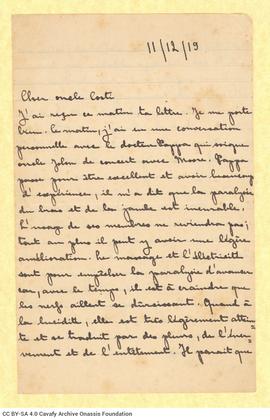 11/12/19
Cher oncle Costi
J'ai reçu ce matin ta lettre. Je me porte
bien. Le matin, j'ai eu une conversation
personnelle avec le docteur Pappa qui soigne
oncle John de concert avec Moore. Pappa
passe pour être excellent et avoir beaucoup
d'expérience, il m'a dit que la paralysie
du bras et de la jambe est incurable.
L'usage de ses membres ne reviendra pas;
tout au plus il peut y avoir une légère
amélioration. Le massage et l'éléctricité
sont pour empêcher la paralysie d'avancer
car, avec le temps, il est à craindre que
les nerfs aillent se durcissant. Quand à
la lucidité, elle est très légèrement attein-
te et se traduit par des pleurs, de l'éner-
vement et de l'entêtement. Il parait que
CC BY-SA 4.0 Cavafy Archive Onassis Foundation